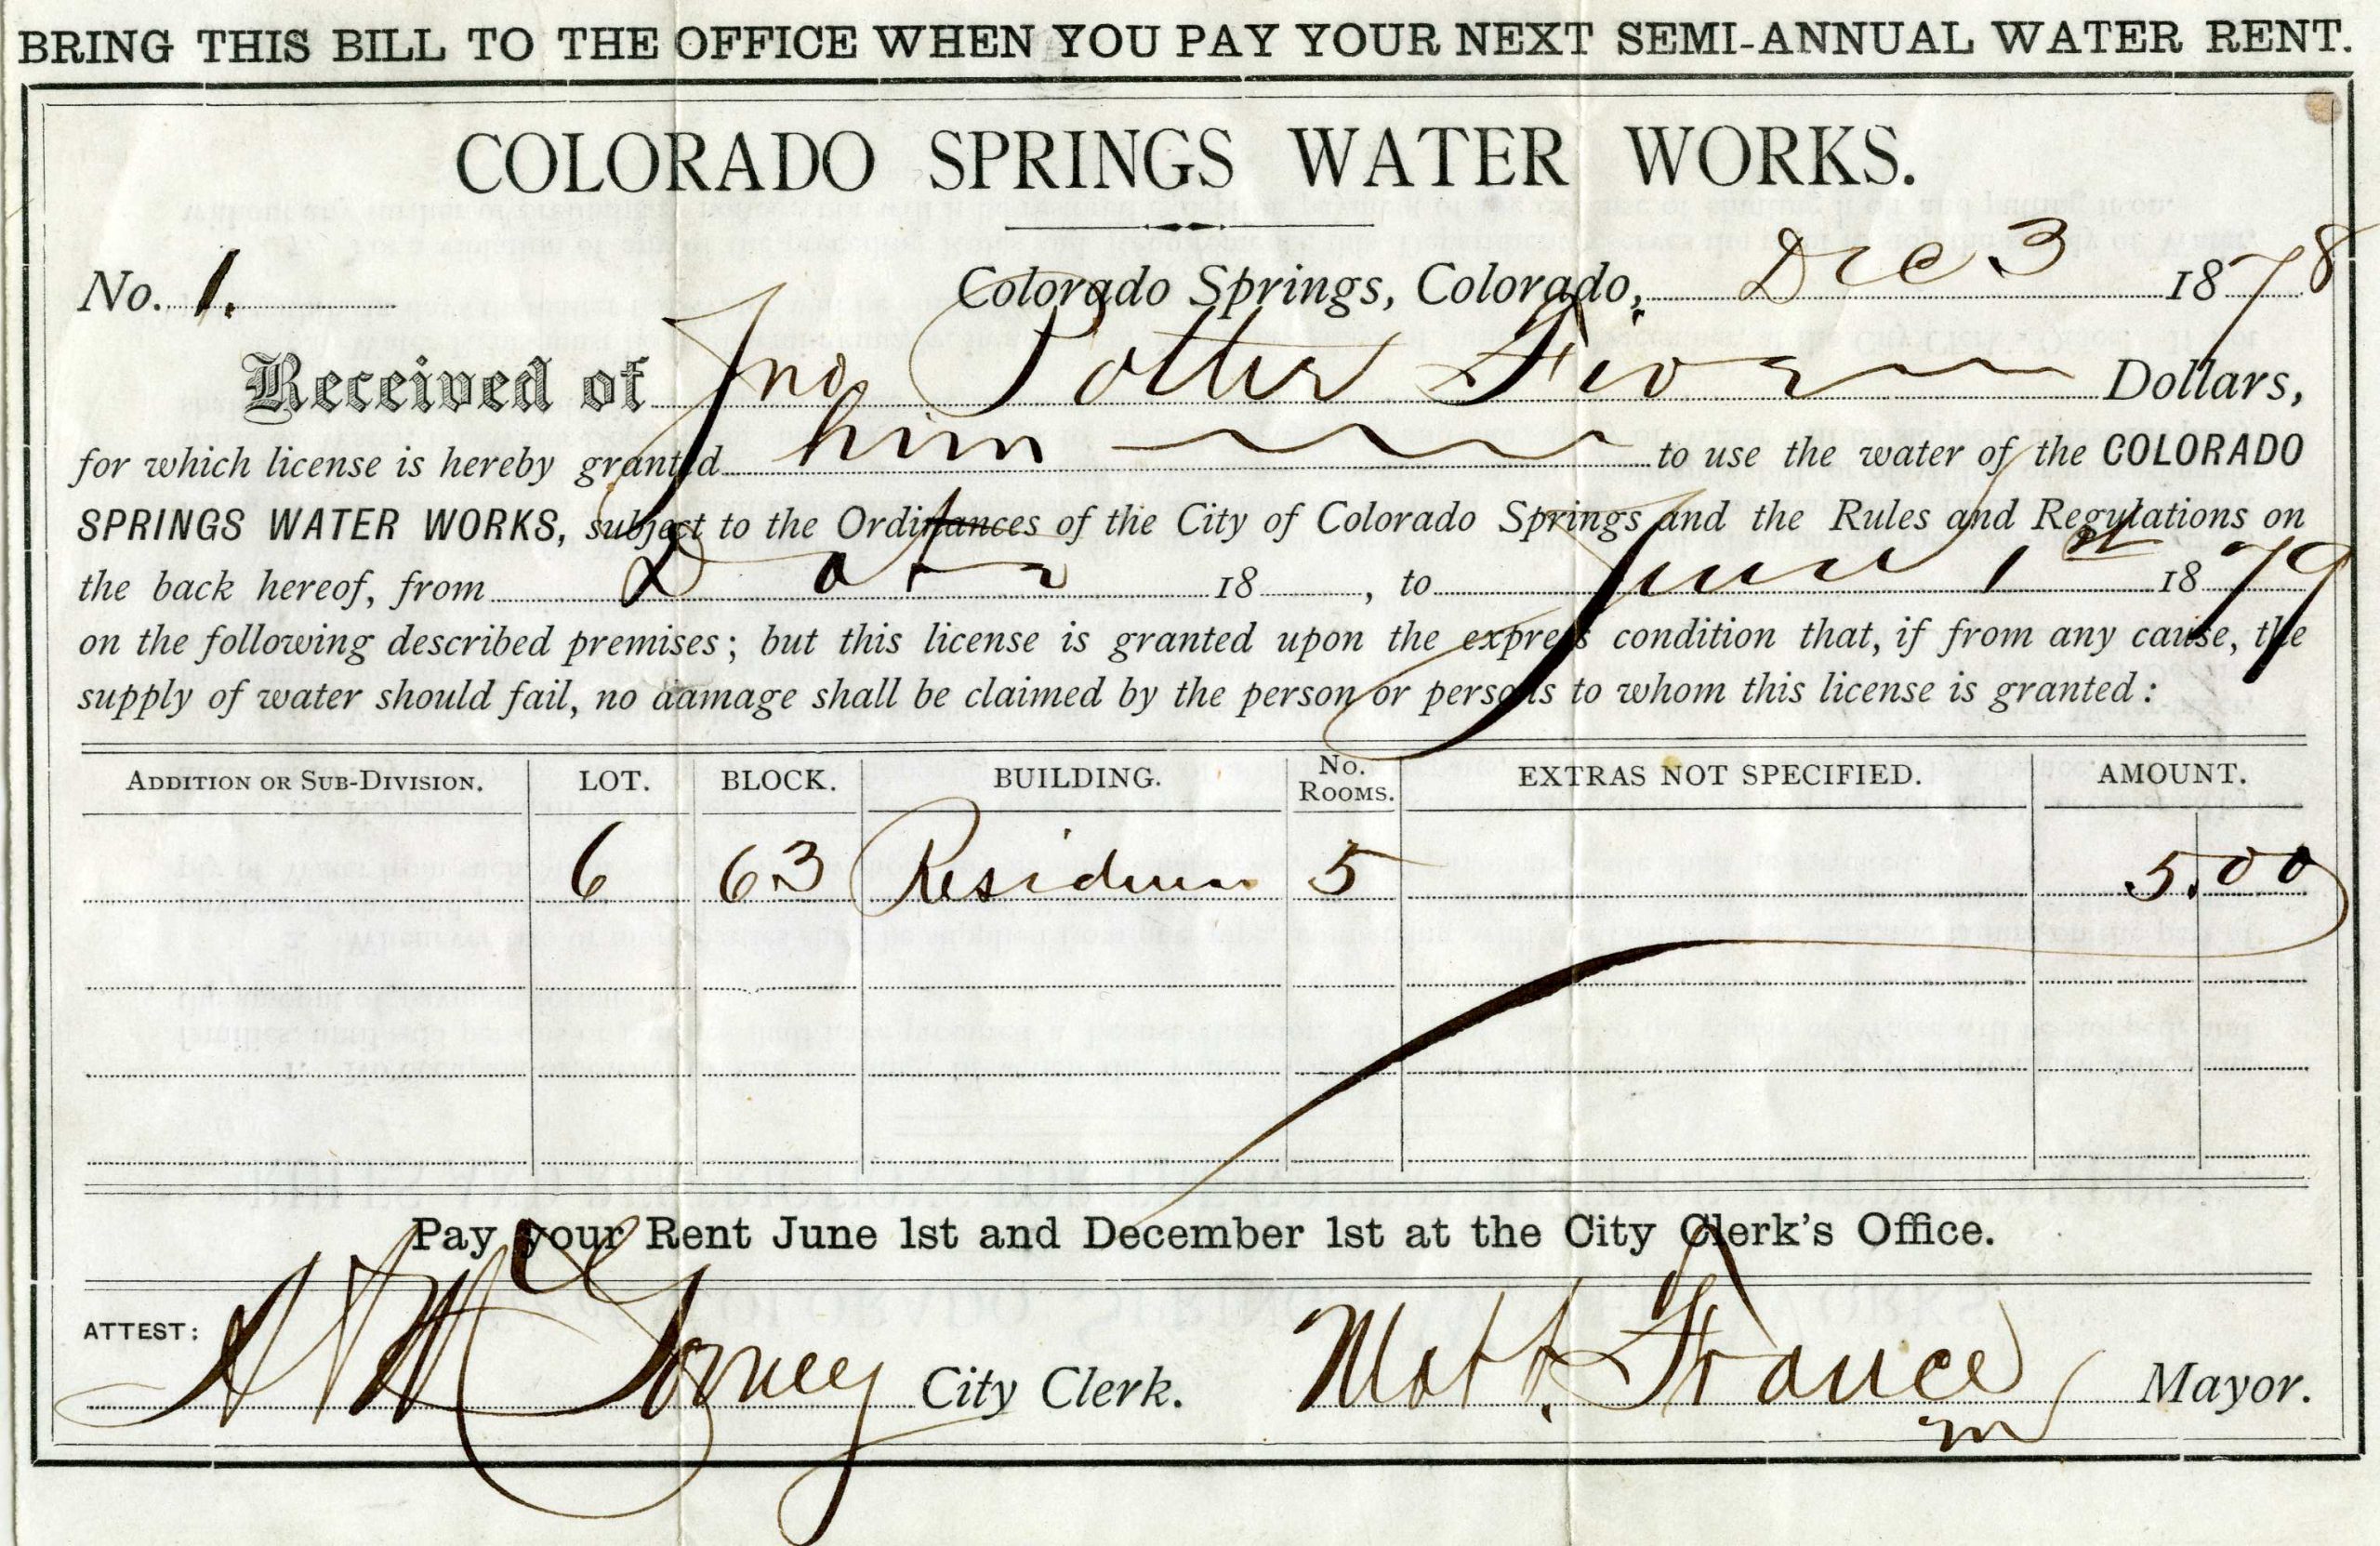 BRING THIS BILL TO THE OFFICE WHEN YOU PAY YOUR NEXT SEMI-ANNUAL WATER RENT.
COLORADO SPRINGS WATER WORKS.
No. 1. Colorado Springs, Colorado, Dec 3 1878
Received of Jno Potter Five Dollars,
for which license is hereby granted him to use the water of the COLORADO
SPRINGS WATER WORKS, subject to the Ordinances of the City of Colorado Springs and the Rules and Regulations on
the back hereof, from Date 18 , to June 1st 1879
on the following described premises; but this license is granted upon the express condition that, if from any cause, the
supply of water should fail, no damage shall be claimed by the person or persons to whom this license is granted:
ADDITION OR SUB-DIVISION. LOT. BLOCK. BUILDING. No. ROOMS. EXTRAS NOT SPECIFIED. AMOUNT.
6 63 Residence 5 5.00
Pay your Rent June 1st and December 1st at the City Clerk's Office.
ATTEST: City Clerk. Matt. France Mayor.